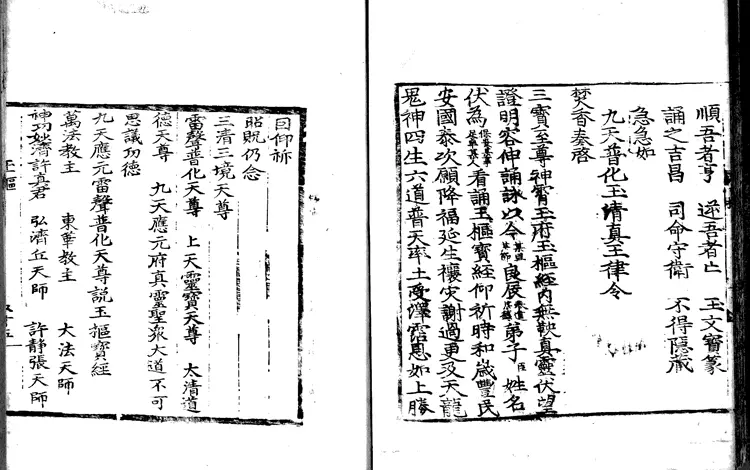 順吾者亨　逆吾者亡　玉文寶篆
誦之吉昌　司命守衛　不得隱藏
急急如
九天普化玉清真王律令
焚香奏啓
三寶至尊神霄玉府玉樞經內無鞅真靈伏望
證明容伸誦詠以今良辰弟子臣姓名
伏為看誦玉樞寶經仰祈時和歲豐民
安國泰次願降福延生禳灾謝過更及天龍
鬼神四生六道普天率土受澤霑恩如上勝
因仰祈
昭貺仍念
三清三境天尊
雷聲普化天尊　上天靈寶天尊　太清道
德天尊　九天應元府真靈聖衆大道不可
思議功德
九天應元雷聲普化天尊説玉樞寶經
萬法教主　東華教主　大法天師
神功妙濟許真君　弘濟丘天師　許靜張天師
玉樞